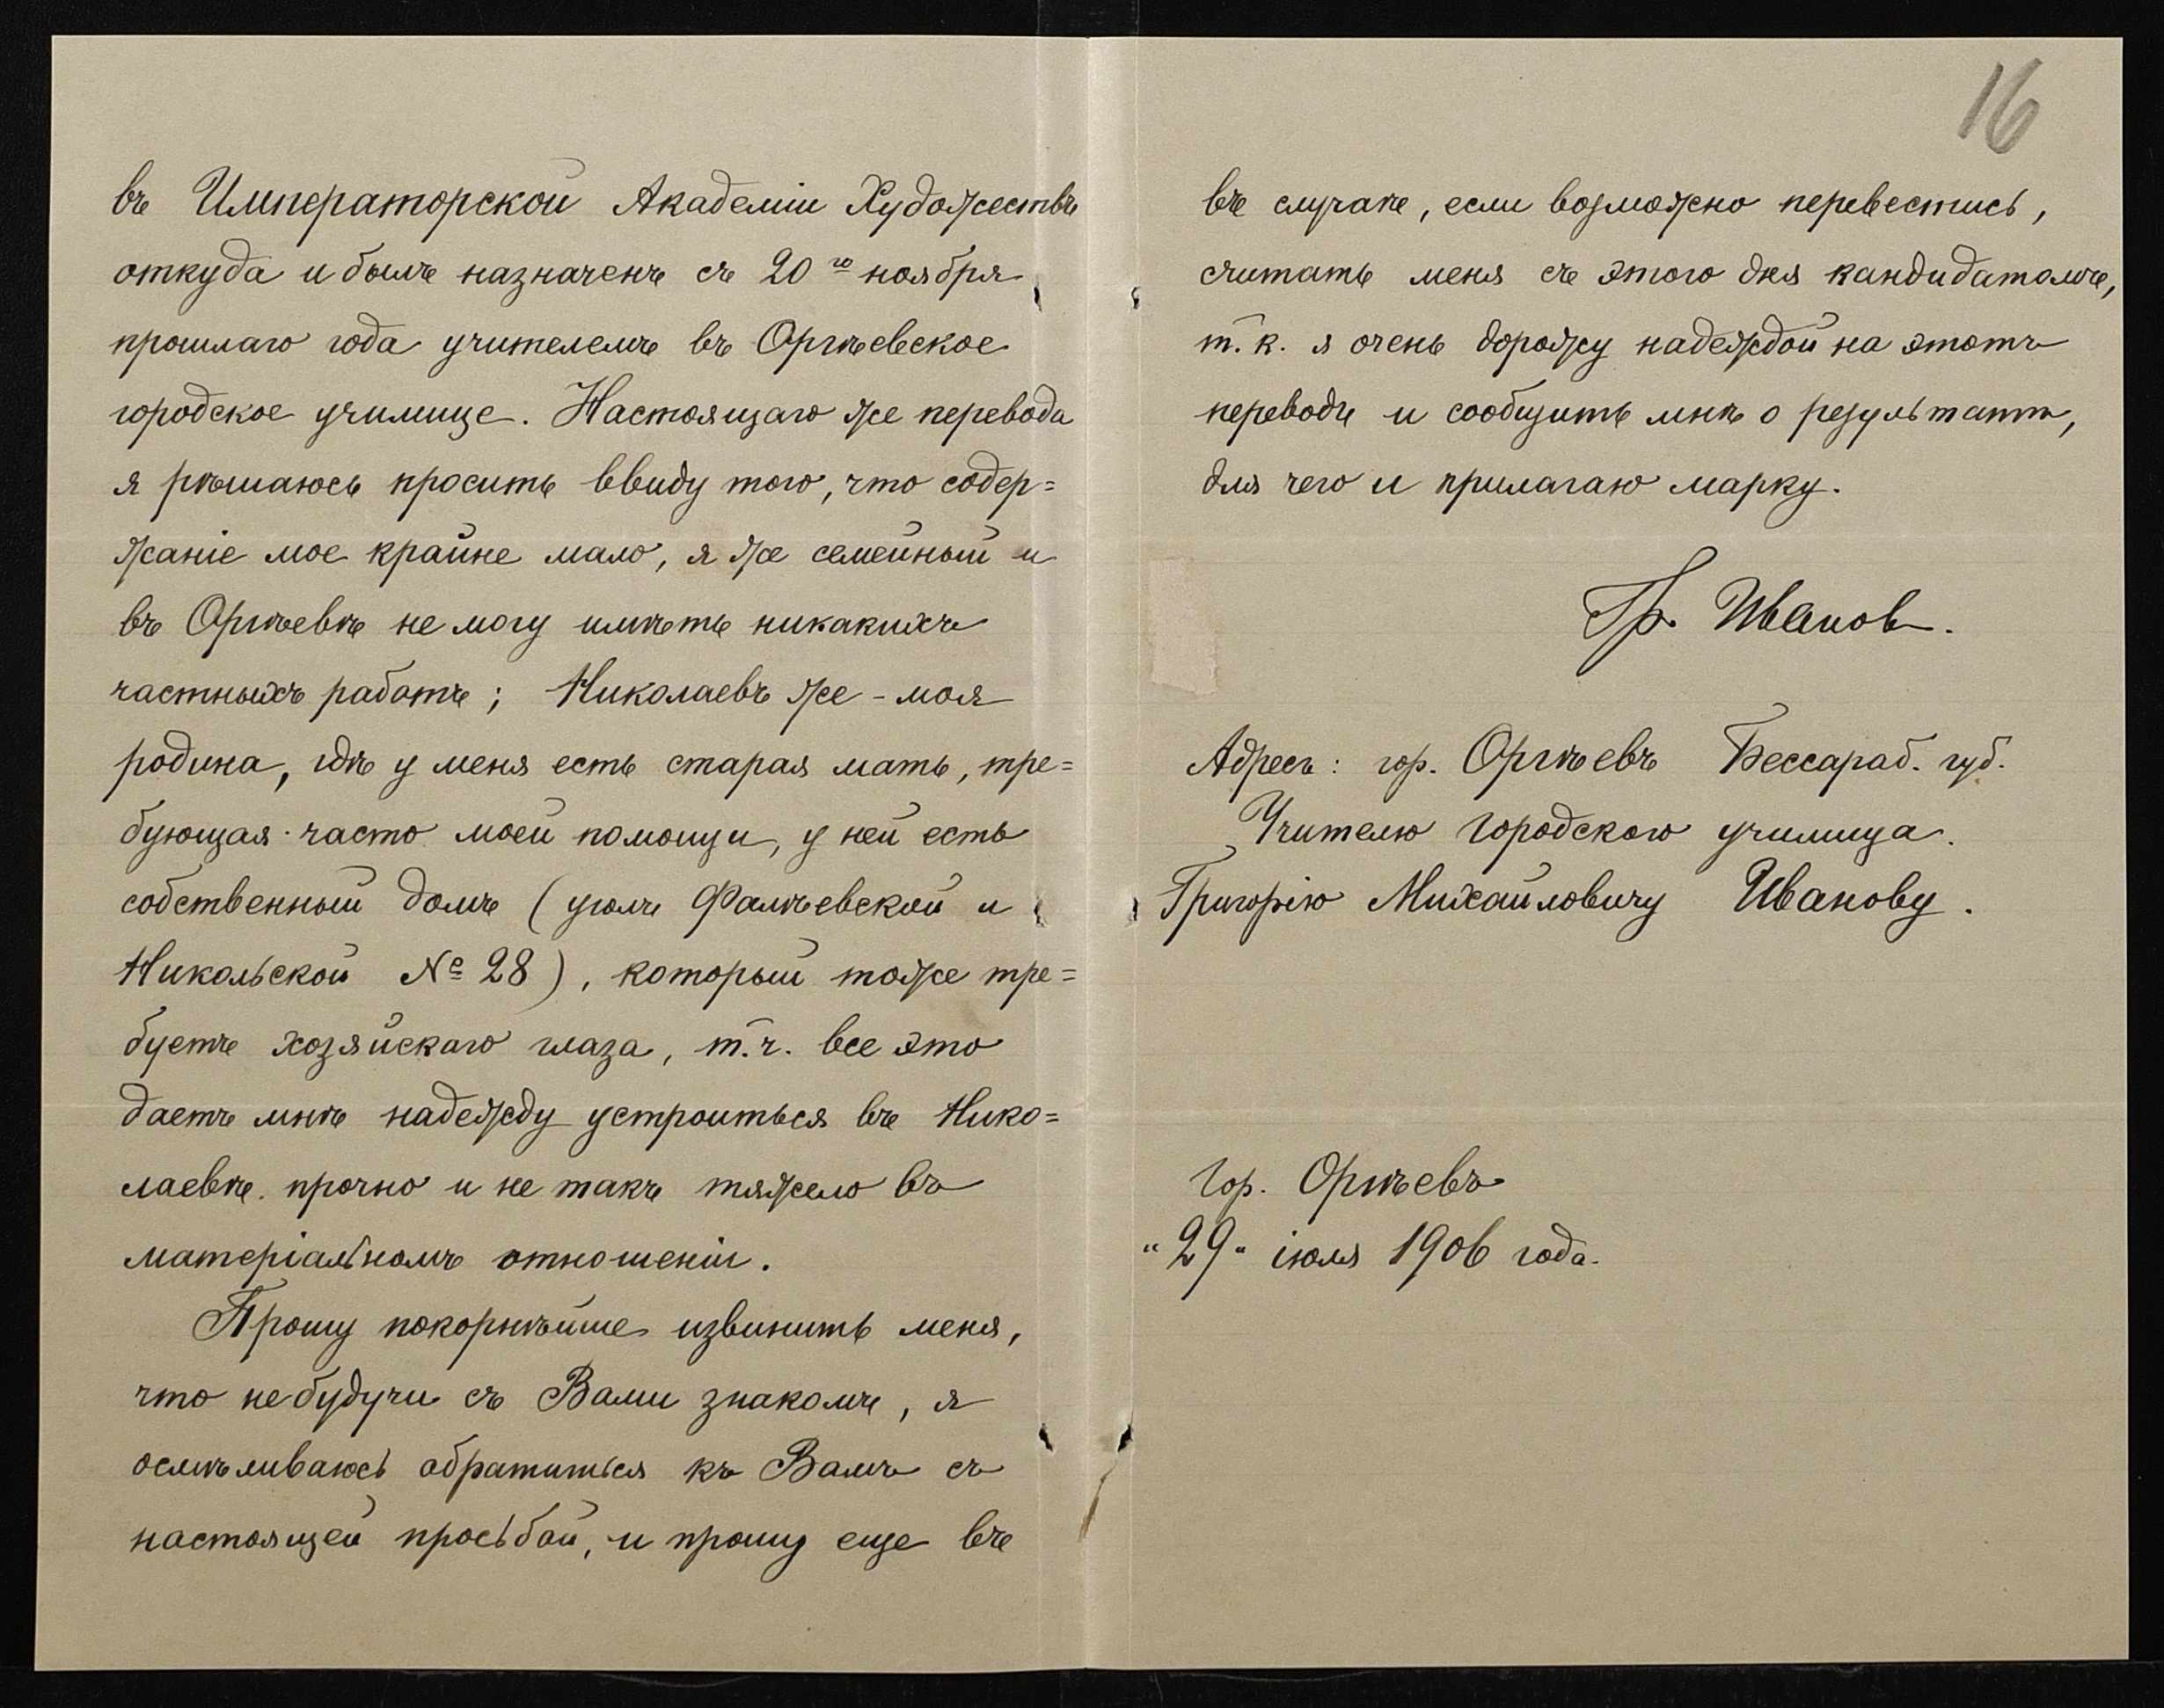 въ Императорской Академіи Художествъ
откуда и былъ назначенъ съ 20го ноября
прошлаго года учителемъ въ Оргѣевское
городское училище. Настоящаго же перевода
я рѣшаюсь просить ввиду того, что содер=
жаніе мое крайне мало, я же семейный и
въ Оргѣевѣ не могу имѣть никакихъ
частныхъ работъ; Николаевъ же - моя
родина, гдѣ у меня есть старая мать, тре=
бующая часто моей помощи, у ней есть
собственный домъ (уголъ Фалѣевской и
Никольской № 28), который тоже тре=
буетъ хозяйскаго глаза, т.ч. все это
даетъ мнѣ надежду устроиться въ Нико=
лаевѣ прочно и не такъ тяжело въ
матеріальномъ отношеніи.
Прошу покорнѣйше извинить меня,
что не будучи съ Вами знакомъ, я
осмѣливаюсь обратиться къ Вамъ съ
настоящей просьбой, и прошу еще въ
16
въ случаѣ, если возможно перевестись,
считать меня съ этого дня кандидатомъ,
т.к. я очень дорожу надеждой на этотъ
переводъ и сообщить мнѣ о результатѣ,
для чего и прилагаю марку.
Гр. Иванов.
Адресъ: гор. Оргѣевъ Бессараб. губ.
Учителю Городского училища.
Григорію Михайловичу Иванову.
Гор. Оргѣевъ
"29" іюля 1906 года.